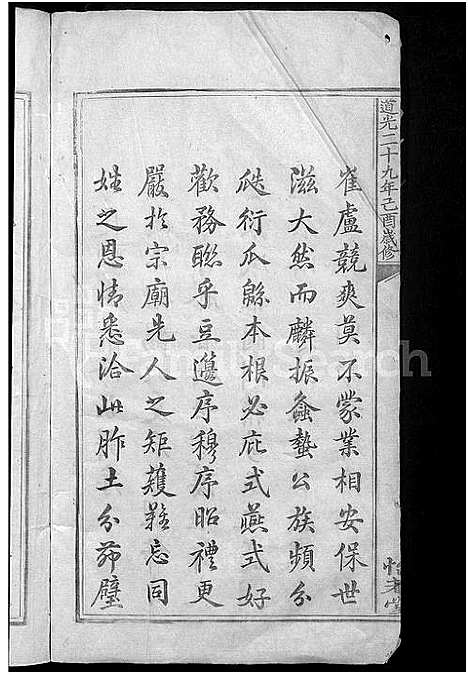 道光二十九年己酉歲修
崔盧競爽莫不蒙業相安保世
滋大然而麟振螽蟄公族頻分
瓞衍瓜緜本根必庇式燕式好
歡務聯乎豆籩序穆序昭禮更
嚴扵宗廟先人之矩矱難忘同
姓之恩情悉洽山胙土分茆璧
FamilySearch